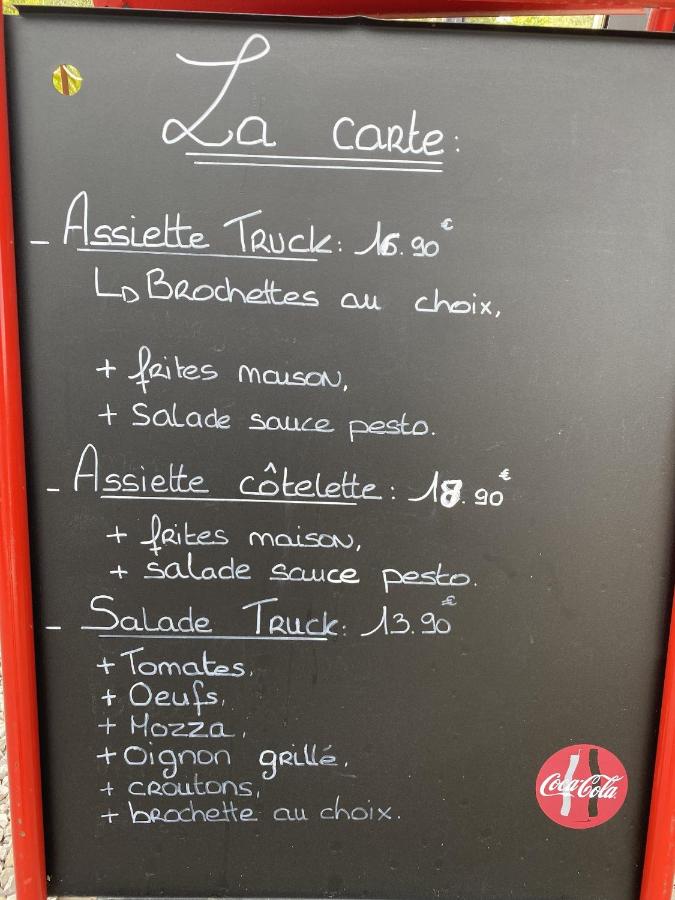 La carte:
- Assiette Truck: 16.90€
↳ Brochettes au choix,
+ frites maison,
+ Salade sauce pesto.
- Assiette côtelette: 18.90€
+ frites maison,
+ salade sauce pesto.
- Salade Truck: 13.90€
+ Tomates,
+ Oeufs,
+ Mozza,
+ Oignon grillé,
+ croutons,
+ brochette au choix.
Coca-Cola